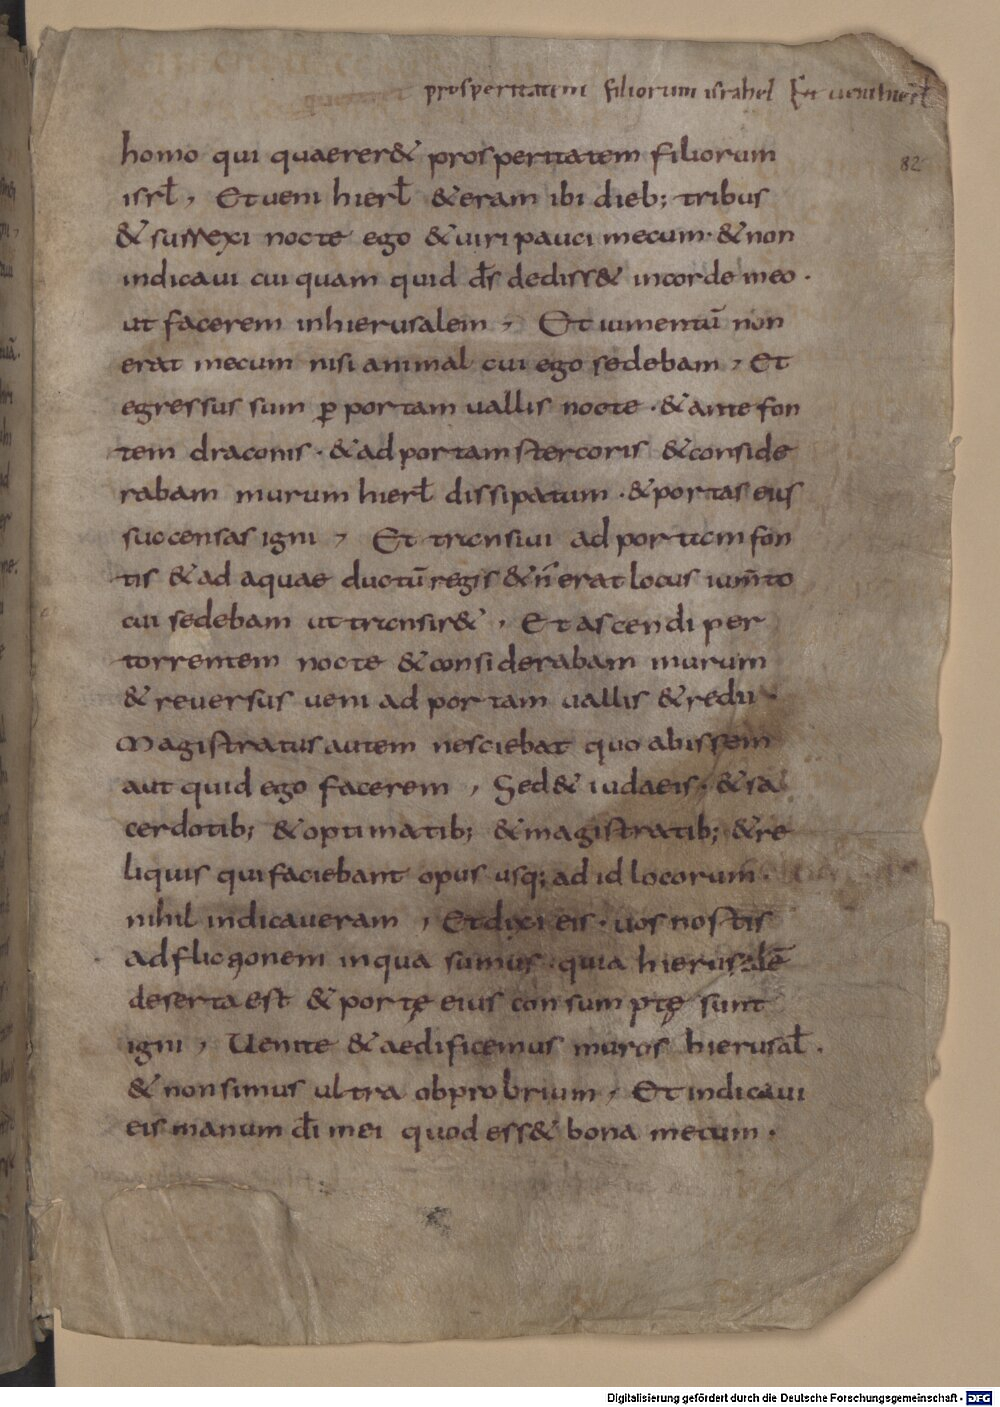 prosperitatem filiorum israhel Et veni hierl̄
82
homo qui quaerer& prosperitatem filiorum
isrl̄, Et veni hierl̄ & eram ibi dieb; tribus
& surrexi nocte ego & uiri pauci mecum · & non
indicaui cuiquam quid d̄s dediss& incorde meo ·
ut facerem inhierusalem, Et iumentū non
erat mecum nisi animal cui ego sedebam, Et
egressus sum ꝑ portam uallis nocte · & ante fon
tem draconis · & ad portam stercoris & conside
rabam murum hierl̄ dissipatum · & portas eius
succensas igni, Et transiui ad portam fon
tis & ad aquae ductū regis & n̄ erat locus ium̄to
cui sedebam ut transir&, Et ascendi per
torrentem nocte & considerabam murum
& reuersus ueni ad portam uallis & redii
Magistratus autem nesciebat quo abissem
aut quid ego facerem, Sed & iudaeis · & sa
cerdotib; & optimatib; & magistratib; & re
liquis qui faciebant opus usq; ad id locorum ·
nihil indicaueram, Et dixi eis · uos nostis
adflictionem in qua sumus · quia hierusalē
deserta est & portę eius consumptę sunt
igni, Uenite & aedificemus muros hierusal̄ ·
& non simus ultra obprobrium, Et indicaui
eis manum dī mei quod ess& bona mecum ·
Digitalisierung gefördert durch die Deutsche Forschungsgemeinschaft - DFG